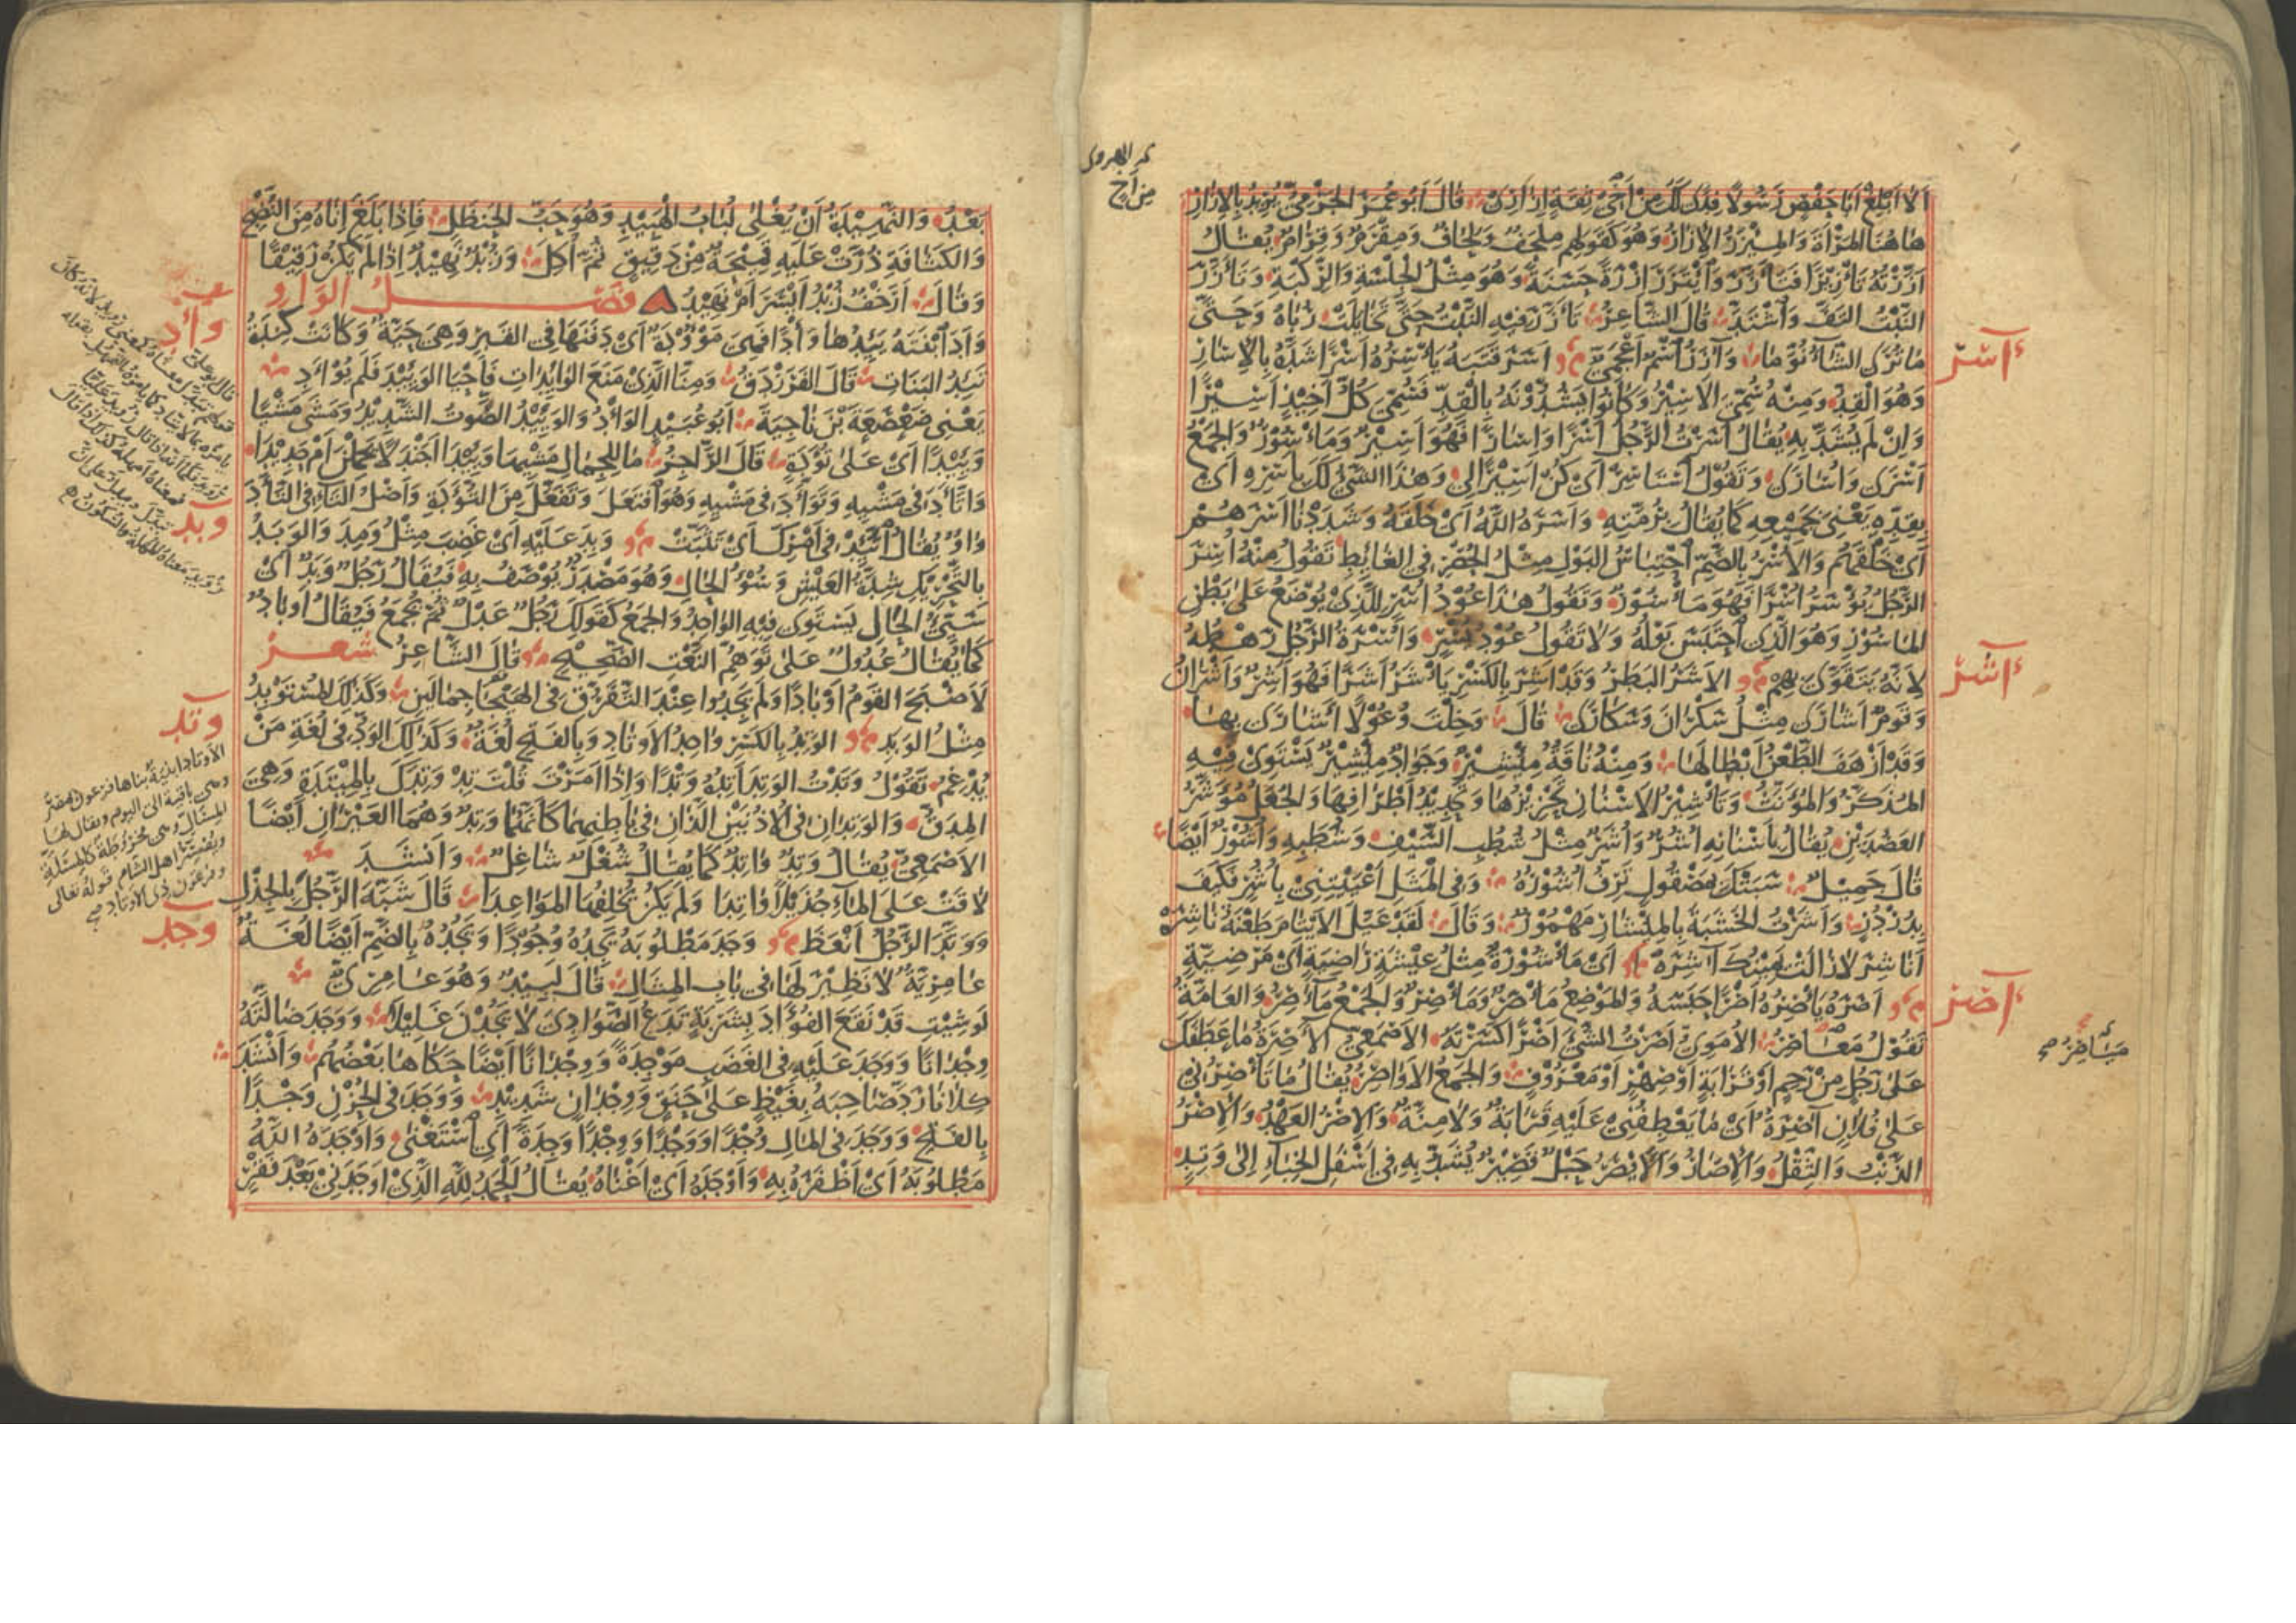 أَلَا أَبْلِغْ أَبَا حَفْصٍ رَسُولًا فِدًى لَكَ مِنْ أَخِي ثِقَةٍ إِزَارِي قَالَ أَبُو عُمَرَ الجَرْمِيُّ يُرِيدُ بِالإِزَارِ
هَاهُنَا المَرْأَةَ وَالمِئْزَرُ الإِزَارُ وَهُوَ كَقَوْلِهِم مِلْحَفٌ وَلِحَافٌ وَمِقْرَمٌ وَقِرَامٌ يُقَالُ
أَزَّرْتُهُ تَأْزِيرًا فَتَأَزَّرَ وَأْتَزَرَ إِزْرَةً حَسَنَةً وَهُوَ مِثْلُ الجِلْسَةِ وَالرِّكْبَةِ وَتَأَزَّرَ
النَّبْتُ الْتَفَّ وَاشْتَدَّ قَالَ الشَّاعِرُ تَأَزَّرَ فِيهِ النَّبْتُ حَتَّى تَخَايَلَتْ رُبَاهُ وَحَتَّى
مَا تُرَى الشَّاءُ نُوَّمَا وَآزَرُ اسْمٌ أَعْجَمِيٌّ أَسَرَ قَتَبَهُ يَأْسِرُهُ أَسْرًا شَدَّهُ بِالإِسَارِ
أسر
وَهُوَ القِدُّ وَمِنْهُ سُمِّيَ الأَسِيرُ وَكَانُوا يَشُدُّونَهُ بِالقِدِّ فَسُمِّيَ كُلُّ أَخِيذٍ أَسِيرًا
وَإِنْ لَمْ يُشَدَّ بِهِ يُقَالُ أَسَرْتُ الرَّجُلَ أَسْرًا وَإِسَارًا فَهُوَ أَسِيرٌ وَمَأْسُورٌ وَالجَمْعُ
أَسْرَى وَأُسَارَى وَتَقُولُ اسْتَأْسِرْ أَيْ كُنْ أَسِيرًا لِي وَهَذَا الشَّيْءُ لَكَ بِأَسْرِهِ أَيْ
بِقِدِّهِ يَعْنِي جَمِيعِهِ كَمَا يُقَالُ بِرُمَّتِهِ وَأَسَرَهُ اللَّهُ أَيْ خَلَقَهُ وَشَدَدْنَا أَسْرَهُمْ
أَيْ خَلْقَهُمْ وَالأُسْرُ بِالضَّمِّ احْتِبَاسُ البَوْلِ مِثْلُ الحُصْرِ فِي الغَائِطِ تَقُولُ مِنْهُ أُسِرَ
الرَّجُلُ يُؤْسَرُ أُسْرًا فَهُوَ مَأْسُورٌ وَتَقُولُ هَذَا عُودُ أُسْرٍ لِلَّذِي يُوضَعُ عَلَى بَطْنِ
المَأْسُورِ وَهُوَ الَّذِي احْتَبَسَ بَوْلُهُ وَلَا تَقُولُ عُودُ يُسْرٍ وَأُسْرَةُ الرَّجُلِ رَهْطُهُ
لِأَنَّهُ يَتَقَوَّى بِهِمْ الأَشَرُ البَطَرُ وَقَدْ أَشِرَ بِالكَسْرِ يَأْشَرُ أَشَرًا فَهُوَ أَشِرٌ وَأَشْرَانُ
أشر
وَقَوْمٌ أَشَارَى مِثْلُ سَكْرَانَ وَسَكَارَى قَالَ وَخَلَّتْ وُعُولًا أَشَارَى بِهَا
وَقَدْ أَزْهَفَ الطَّعْنُ أَبْطَالَهَا وَمِنْهُ نَاقَةٌ مِئْشِيرٌ وَجَوَادٌ مِئْشِيرٌ يَسْتَوِي فِيهِ
المُذَكَّرُ وَالمُؤَنَّثُ وَتَأْشِيرُ الأَسْنَانِ تَحْزِيزُهَا وَتَحْدِيدُ أَطْرَافِهَا وَالجُعَلُ مُؤَشَّرُ
العَضُدَيْنِ يُقَالُ بِأَسْنَانِهِ أُشُرٌ وَأُشَرٌ مِثْلُ شُطُبِ السَّيْفِ وَشُطَبِهِ وَأُشُورٌ أَيْضًا
قَالَ جَمِيلٌ سَبَتْكَ بِمَصْقُولٍ تَرِفُّ أُشُورُهُ وَفِي المَثَلِ أَعْيَيْتِنِي بِأُشُرٍ فَكَيْفَ
بِدُرْدُرٍ وَأَشَرْتُ الخَشَبَةَ بِالمِئْشَارِ مَهْمُوزٌ وَقَالَ لَقَدْ عَيَّلَ الأَيْتَامَ طَعْنَةُ نَاشِرَهْ
أَنَاشِرَ لَا زَالَتْ يَمِينُكَ آشِرَهْ أَيْ مَأْشُورَةً مِثْلُ عِيشَةٍ رَاضِيَةٍ أَيْ مَرْضِيَّةٍ
أَصَرَهُ يَأْصِرُهُ أَصْرًا حَبَسَهُ وَالمَوْضِعُ مَأْصَرٌ وَمَأْصِرٌ وَالجَمْعُ مَآصِرُ وَالعَامَّةُ
أصر
تَقُولُ مَعَاصِرُ الأُمَوِيُّ أَصَرْتُ الشَّيْءَ أَصْرًا كَسَرْتُهُ الأَصْمَعِيُّ الآصِرَةُ مَا عَطَفَكَ
عَلَى رَجُلٍ مِنْ رَحِمٍ أَوْ قَرَابَةٍ أَوْ صِهْرٍ أَوْ مَعْرُوفٍ وَالجَمْعُ الأَوَاصِرُ يُقَالُ مَا تَأْصِرُنِي
عَلَى فُلَانٍ آصِرَةٌ أَيْ مَا يَعْطِفُنِي عَلَيْهِ قَرَابَةٌ وَلَا مِنَّةٌ وَالإِصْرُ العَهْدُ وَالإِصْرُ
الذَّنْبُ وَالثِّقْلُ وَالإِصَارُ وَالأَيْصَرُ حَبْلٌ قَصِيرٌ يُشَدُّ بِهِ فِي أَسْفَلِ الخِبَاءِ إِلَى وَتِدٍ
بَعْدُ وَالنَّهِيدَةُ أَنْ يُغْلَى لُبَابُ الهَبِيدِ وَهُوَ حَبُّ الحَنْظَلِ فَإِذَا بَلَغَ إِنَاهُ مِنَ النُّضْجِ
وَالكَثَافَةِ ذُرَّتْ عَلَيْهِ قُمَيْحَةٌ مِنْ دَقِيقٍ ثُمَّ أُكِلَ وَزُبْدٌ نَهِيدٌ إِذَا لَمْ يَكُنْ رَقِيقًا
وَقَالَ أَرَخْفٌ زُبْدُ أَيْسَرَ أَمْ نَهِيدُ فصل الواو
وَأَدَ ابْنَتَهُ يَئِدُهَا وَأْدًا فَهِيَ مَوْؤُودَةٌ أَيْ دَفَنَهَا فِي القَبْرِ وَهِيَ حَيَّةٌ وَكَانَتْ كِنْدَةُ
وأد
تَئِدُ البَنَاتِ قَالَ الفَرَزْدَقُ وَمِنَّا الَّذِي مَنَعَ الوَائِدَاتِ فَأَحْيَا الوَئِيدَ فَلَمْ يُوأَدِ
يَعْنِي صَعْصَعَةَ بْنَ نَاجِيَةَ أَبُو عُبَيْدٍ الوَأْدُ وَالوَئِيدُ الصَّوْتُ الشَّدِيدُ وَمَشَى مَشْيًا
وَئِيدًا أَيْ عَلَى تُؤَدَةٍ قَالَ الرَّاجِزُ مَا لِلْجِمَالِ مَشْيِهَا وَئِيدَا أَجَنْدَلًا يَحْمِلْنَ أَمْ حَدِيدَا
وَاتَّأَدَ فِي مَشْيِهِ وَتَوَأَّدَ فِي مَشْيِهِ وَهُوَ افْتَعَلَ وَتَفَعَّلَ مِنَ التُّؤَدَةِ وَأَصْلُ التَّاءِ فِي اتَّأَدَ
وَاوٌ يُقَالُ اتَّئِدْ فِي أَمْرِكَ أَيْ تَثَبَّتْ وَبِدَ عَلَيْهِ أَيْ غَضِبَ مِثْلُ وَمِدَ وَالوَبَدُ
وبد
بِالتَّحْرِيكِ شِدَّةُ العَيْشِ وَسُوءُ الحَالِ وَهُوَ مَصْدَرٌ يُوصَفُ بِهِ فَيُقَالُ رَجُلٌ وَبَدٌ أَيْ
سَيِّئُ الحَالِ يَسْتَوِي فِيهِ الوَاحِدُ وَالجَمْعُ كَقَوْلِكَ رَجُلٌ عَدْلٌ ثُمَّ يُجْمَعُ فَيُقَالُ أَوْبَادٌ
كَمَا يُقَالُ عُدُولٌ عَلَى تَوَهُّمِ النَّعْتِ الصَّحِيحِ قَالَ الشَّاعِرُ شعر
لَأَصْبَحَ القَوْمُ أَوْبَادًا وَلَمْ يَجِدُوا عِنْدَ التَّفَرُّقِ فِي الهَيْجَا جِمَالَيْنِ وَكَذَلِكَ المُسْتَوْبِدُ
مِثْلُ الوَبِدِ الوَتِدُ بِالكَسْرِ وَاحِدُ الأَوْتَادِ وَبِالفَتْحِ لُغَةٌ وَكَذَلِكَ الوَدُّ فِي لُغَةِ مَنْ
وتد
يُدْغِمُ تَقُولُ وَتَدْتُ الوَتِدَ أَتِدُهُ وَتْدًا وَإِذَا أَمَرْتَ قُلْتَ تِدْ وَتِدَكَ بِالمِيتَدَةِ وَهِيَ
المِدَقُّ وَالوَتِدَانِ فِي الأُذُنَيْنِ اللَّذَانِ فِي بَاطِنِهِمَا كَأَنَّهُمَا وَتِدٌ وَهُمَا العَيْرَانِ أَيْضًا
الأَصْمَعِيُّ يُقَالُ وَتِدٌ وَاتِدٌ كَمَا يُقَالُ شُغْلٌ شَاغِلٌ وَأَنْشَدَ
لَاقَتْ عَلَى المَاءِ جُذَيْلًا وَاتِدَا وَلَمْ يَكُنْ يُخْلِفُهَا المَوَاعِدَا قَالَ شَبَّهَ الرَّجُلَ بِالجِذْلِ
وَوَتَّدَ الرَّجُلُ أَنْعَظَ وَجَدَ مَطْلُوبَهُ يَجِدُهُ وُجُودًا وَيَجُدُهُ بِالضَّمِّ أَيْضًا لُغَةٌ
وجد
عَامِرِيَّةٌ لَا نَظِيرَ لَهَا فِي بَابِ المِثَالِ قَالَ لَبِيدٌ وَهُوَ عَامِرِيٌّ
لَوْ شِئْتِ قَدْ نَقَعَ الفُؤَادُ بِشَرْبَةٍ تَدَعُ الصَّوَادِيَ لَا يَجُدْنَ غَلِيلَا وَوَجَدَ ضَالَّتَهُ
وِجْدَانًا وَوَجَدَ عَلَيْهِ فِي الغَضَبِ مَوْجِدَةً وَوِجْدَانًا أَيْضًا حَكَاهَا بَعْضُهُمْ وَأَنْشَدَ
كِلَانَا رَدَّ صَاحِبَهُ بِغَيْظٍ عَلَى حَنَقٍ وَوِجْدَانٍ شَدِيدِ وَوَجَدَ فِي الحُزْنِ وَجْدًا
بِالفَتْحِ وَوَجَدَ فِي المَالِ وُجْدًا وَوَجْدًا وَوِجْدًا وَجِدَةً أَيِ اسْتَغْنَى وَأَوْجَدَهُ اللَّهُ
مَطْلُوبَهُ أَيْ أَظْفَرَهُ بِهِ وَأَوْجَدَهُ أَيْ أَغْنَاهُ يُقَالُ الحَمْدُ لِلَّهِ الَّذِي أَوْجَدَنِي بَعْدَ فَقْرٍ
الأوتاد ابنية بناها فرعون بمصر
وهي باقية الى اليوم ويقال لها